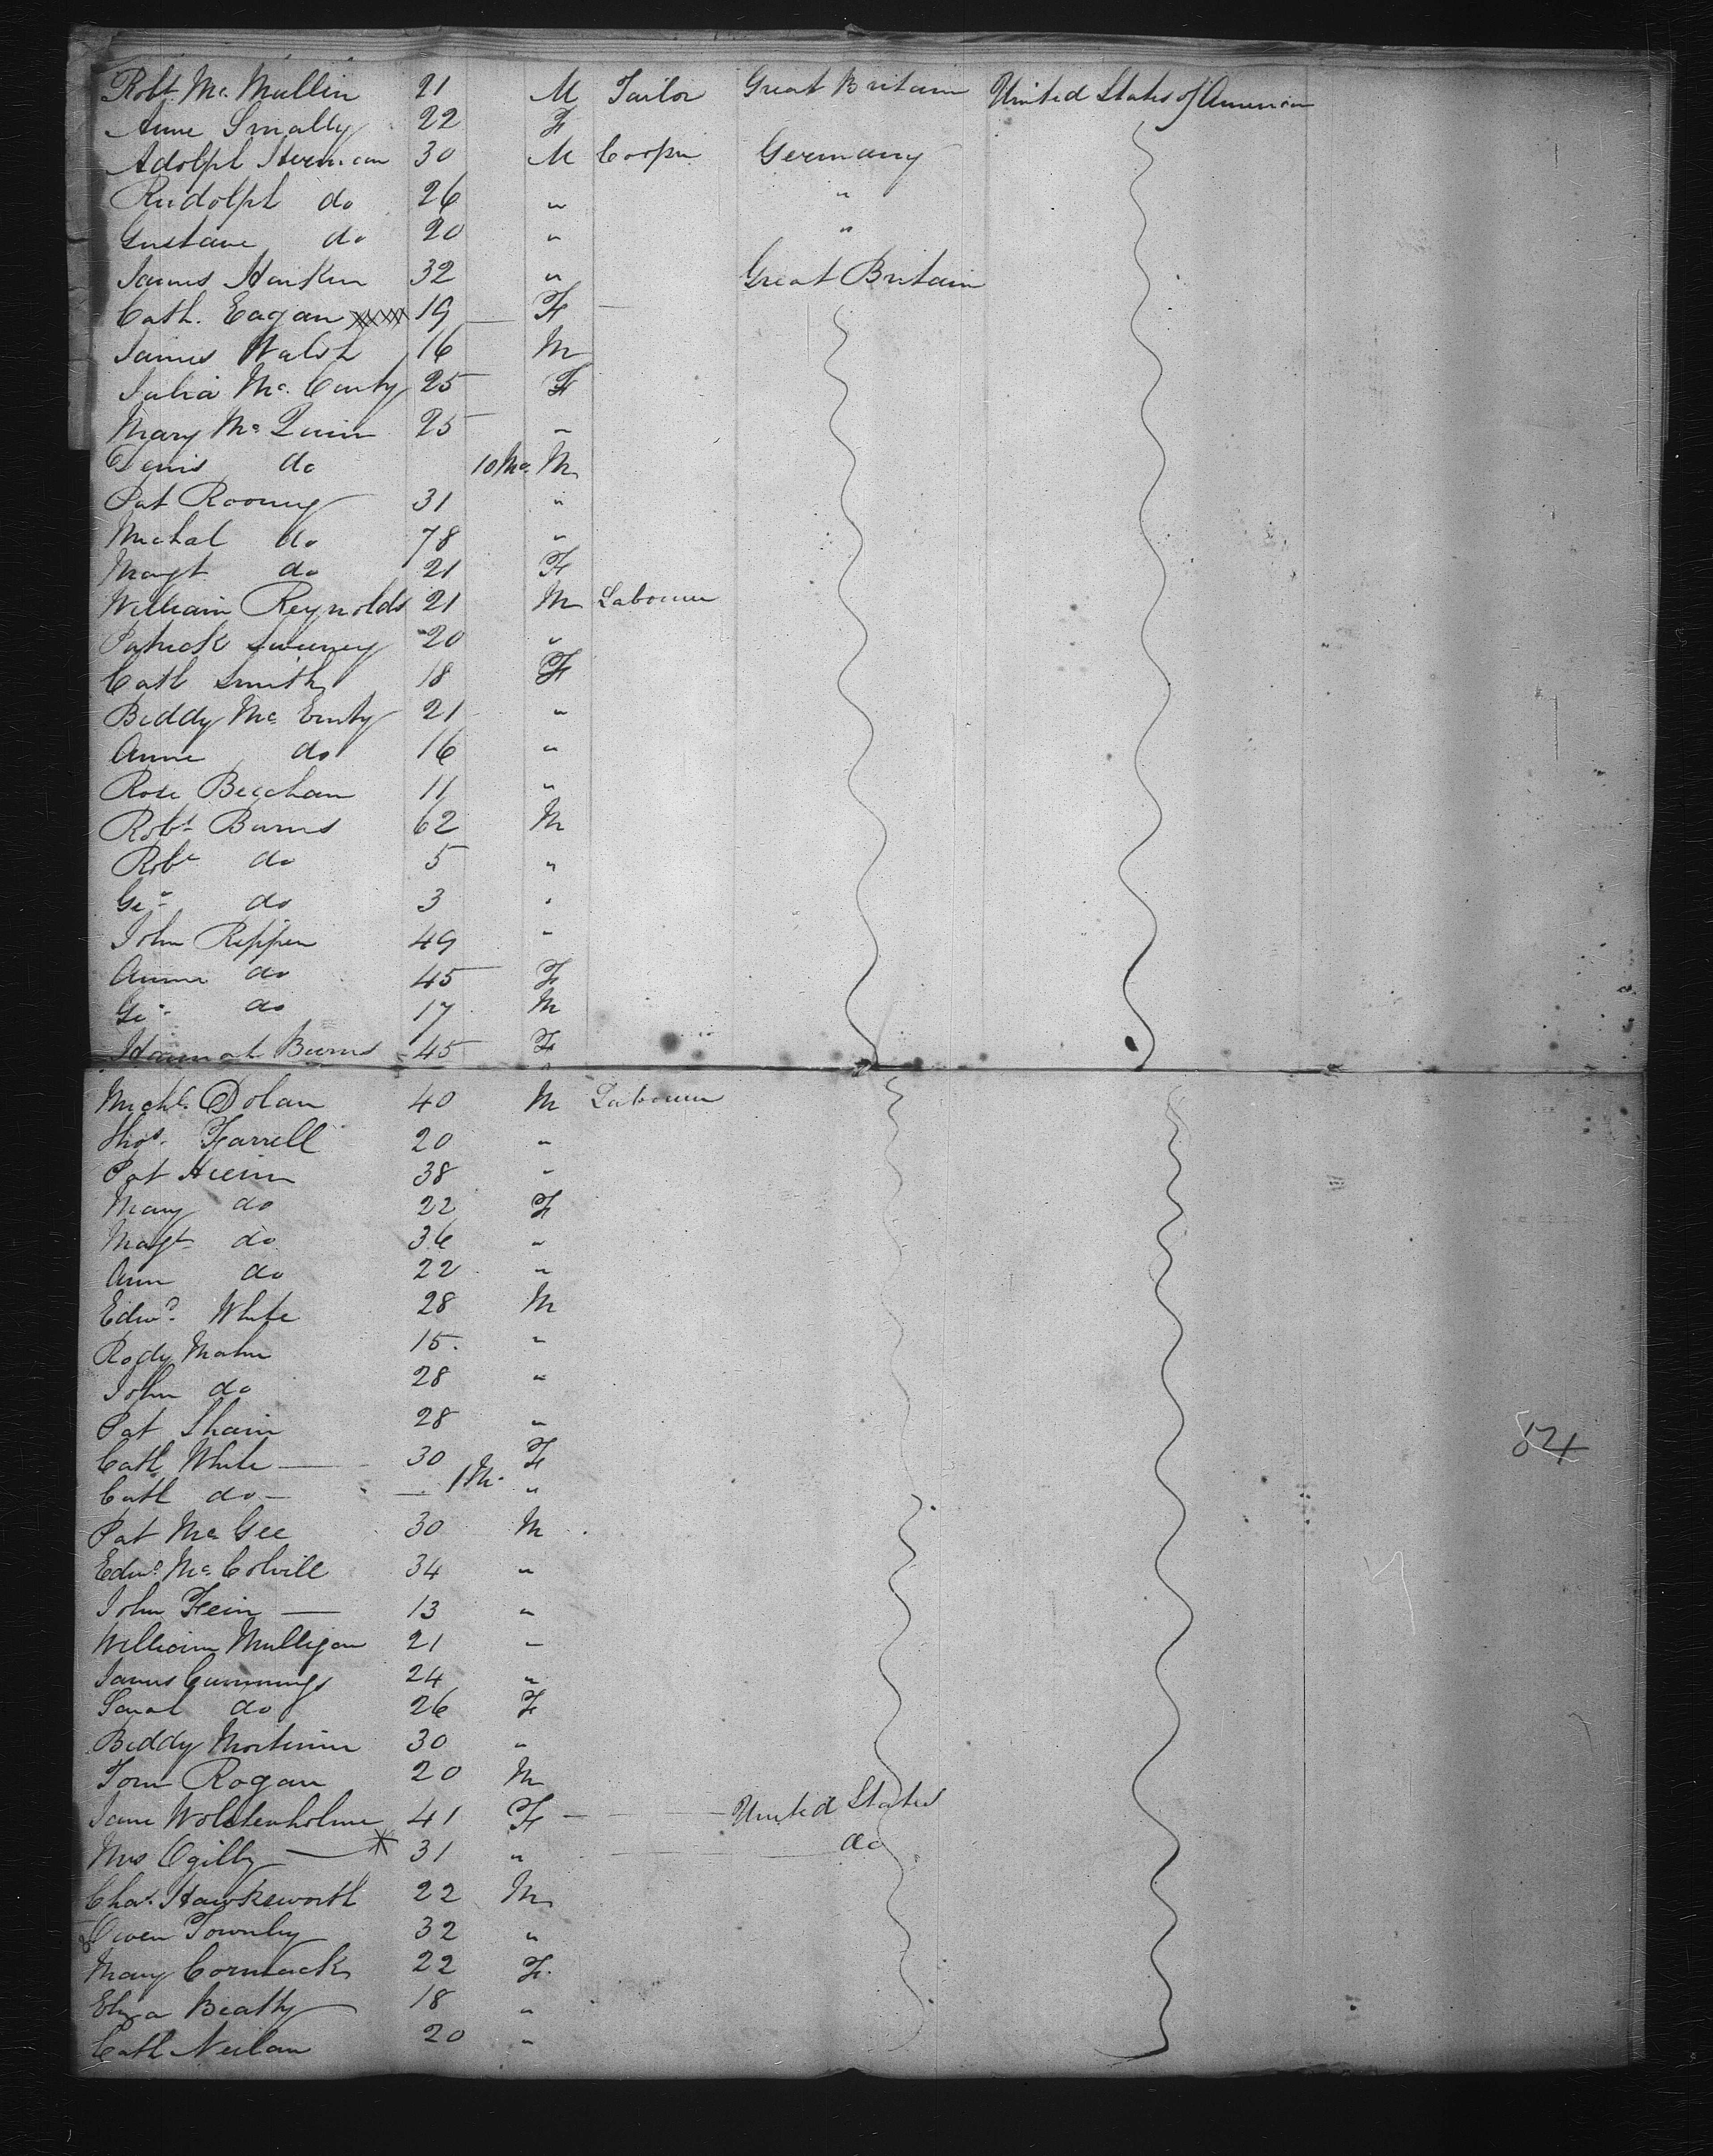 Robt. Mc. Mullin 21 M Tailor Great Britain United States of America
Anne Smally 22 F
Adolph Herman 30 M Cooper Germany
Rudolph do 26 " "
Gustave do 20 " "
James Harken 32 " Great Britain
Cath. Eagan 19 F
James Walsh 16 M
Julia Mc. Carty 25 F
Mary Mc Quin 25 "
Denis do 10 Mo. M
Pat Rooney 31 "
Michal do 78 "
Margt do 21 F
William Reynolds 21 M Labourer
Patrick Sweeney 20 "
Cath Smith 18 F
Biddy Mc Enty 21 "
Anne do 16 "
Rose Beechan 11 "
Robt Burns 62 M
Robt do 5 "
Geo do 3 "
John Rippen 49 "
Anne do 45 F
Geo do 17 M
Hannah Burns 45 F
Michl. Dolan 40 M Labourer
Thos. Farrell 20 "
Pat 38 "
Mary do 22 F
Magt do 36 "
Ann do 22 "
Edwd. White 28 M
Rody Maher 15. "
John do 28 "
Pat Shain 28 "
Cath White 30 F
Cath do 1 M. "
Pat Mc Gee 30 M
Edwd. Mc Colvill 34 "
John Fein 13 "
William Mulligan 21 "
James Cummings 24 "
Sarah do 26 F
Biddy Mortimer 30 "
Tom Rogan 20 M
Jane Wolstenholme 41 F United States
Mrs Ogilby * 31 " do
Chas. Hawksworth 22 M
Owen Townley 32 "
Mary Cormack 22 F.
Eliza Beatty 18 "
Cath Neilan 20 "